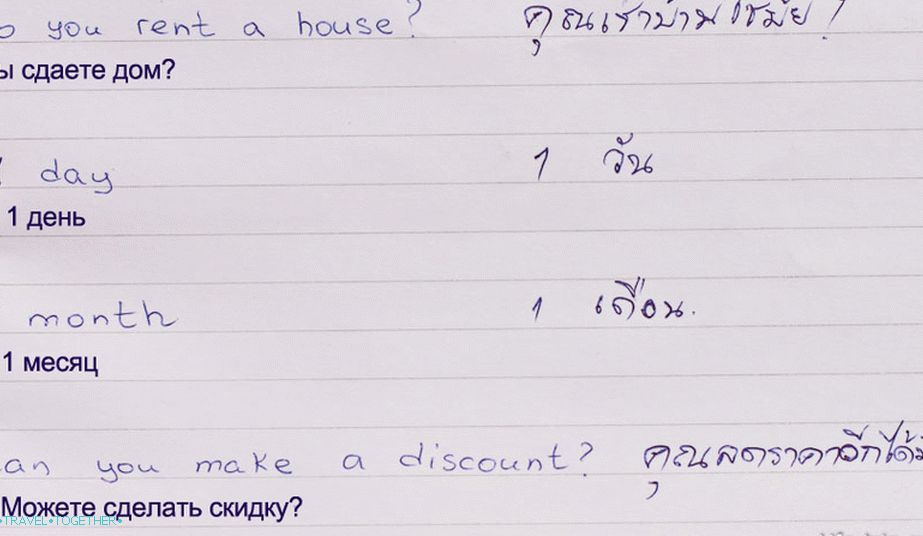 o you rent a house? คุณเช่าบ้านไหม?
ы сдаете дом?
day 1 วัน
1 день
month 1 เดือน.
1 месяц
an you make a discount? คุณลดราคาอีกได้
Можете сделать скидку?
•TRAVEL•TOGETHER•